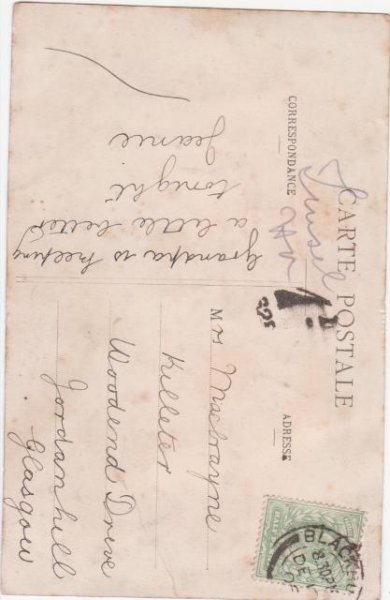 CARTE POSTALE
CORRESPONDANCE
ADRESSE
Grandpa is keeping
a little better
tonight
Jeanie
Mrs Macbrayne
Killeter
Woodend Drive
Jordanhill
Glasgow